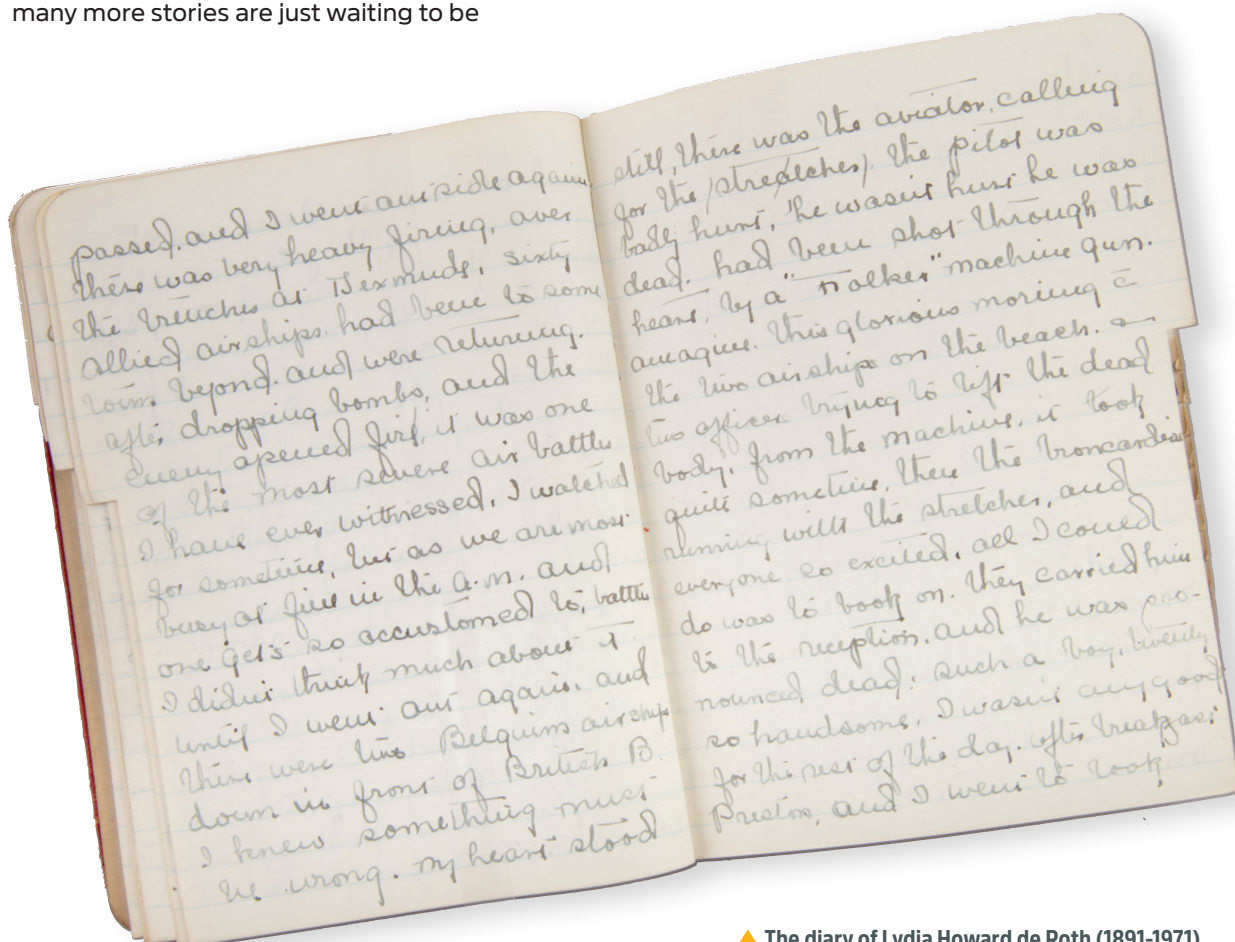 many more stories are just waiting to be
passed, and I went outside again,
there was very heavy firing, over
the trenches at Dexmude, sixty
allied airships had been to some
towns beyond, and were returning.
after dropping bombs, and the
enemy opened fire, it was one
of the most severe air battles
I have ever witnessed, I watched
for sometime, but as we are most
busy at five in the a.m. and
one gets so accustomed to, battles
I didn't think much about it
until I went out again, and
there were two Belguims airships
down in front of British B.
I knew something must
be wrong. my heart stood
still, there was the aviator, calling
for the (stretcher). the pilot was
badly hurt, he wasn't hurt he was
dead. had been shot through the
heart, by a " " machine gun.
amagine. this glorious morning c̄
the two airships on the beach.
two officer trying to lift the dead
body, from the machine, it took
quite sometime, then the broncardiers
running with the stretcher, and
everyone so excited, all I could
do was to look on. they carried him
to the reception, and he was pro-
nounced dead; such a boy, twenty
so handsome, I wasn't any good
for the rest of the day. after breakfast
Preston, and I went to look
The diary of Lydia Howard de Roth (1891-1971)